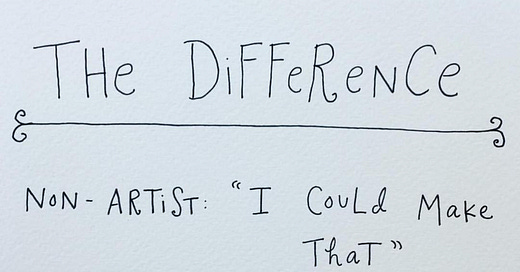 THe DiFFeReNCe
NoN-ARTiST: “I CouLd Make
ThaT”